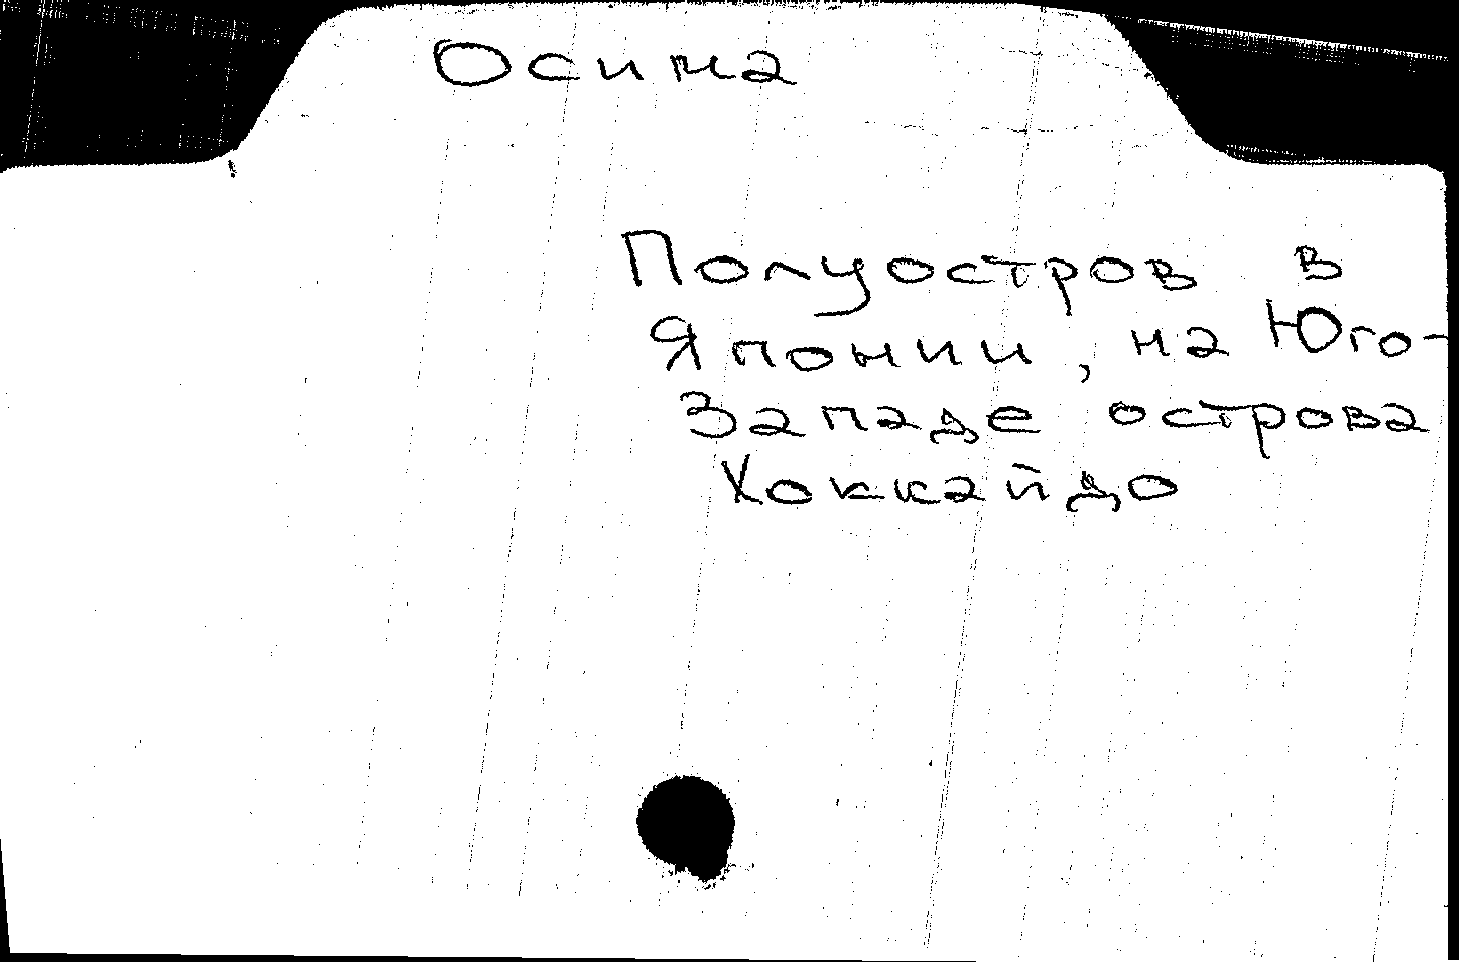 Осима
Полуостров в
Японии, на Юго-
Западе острова
Хоккайдо